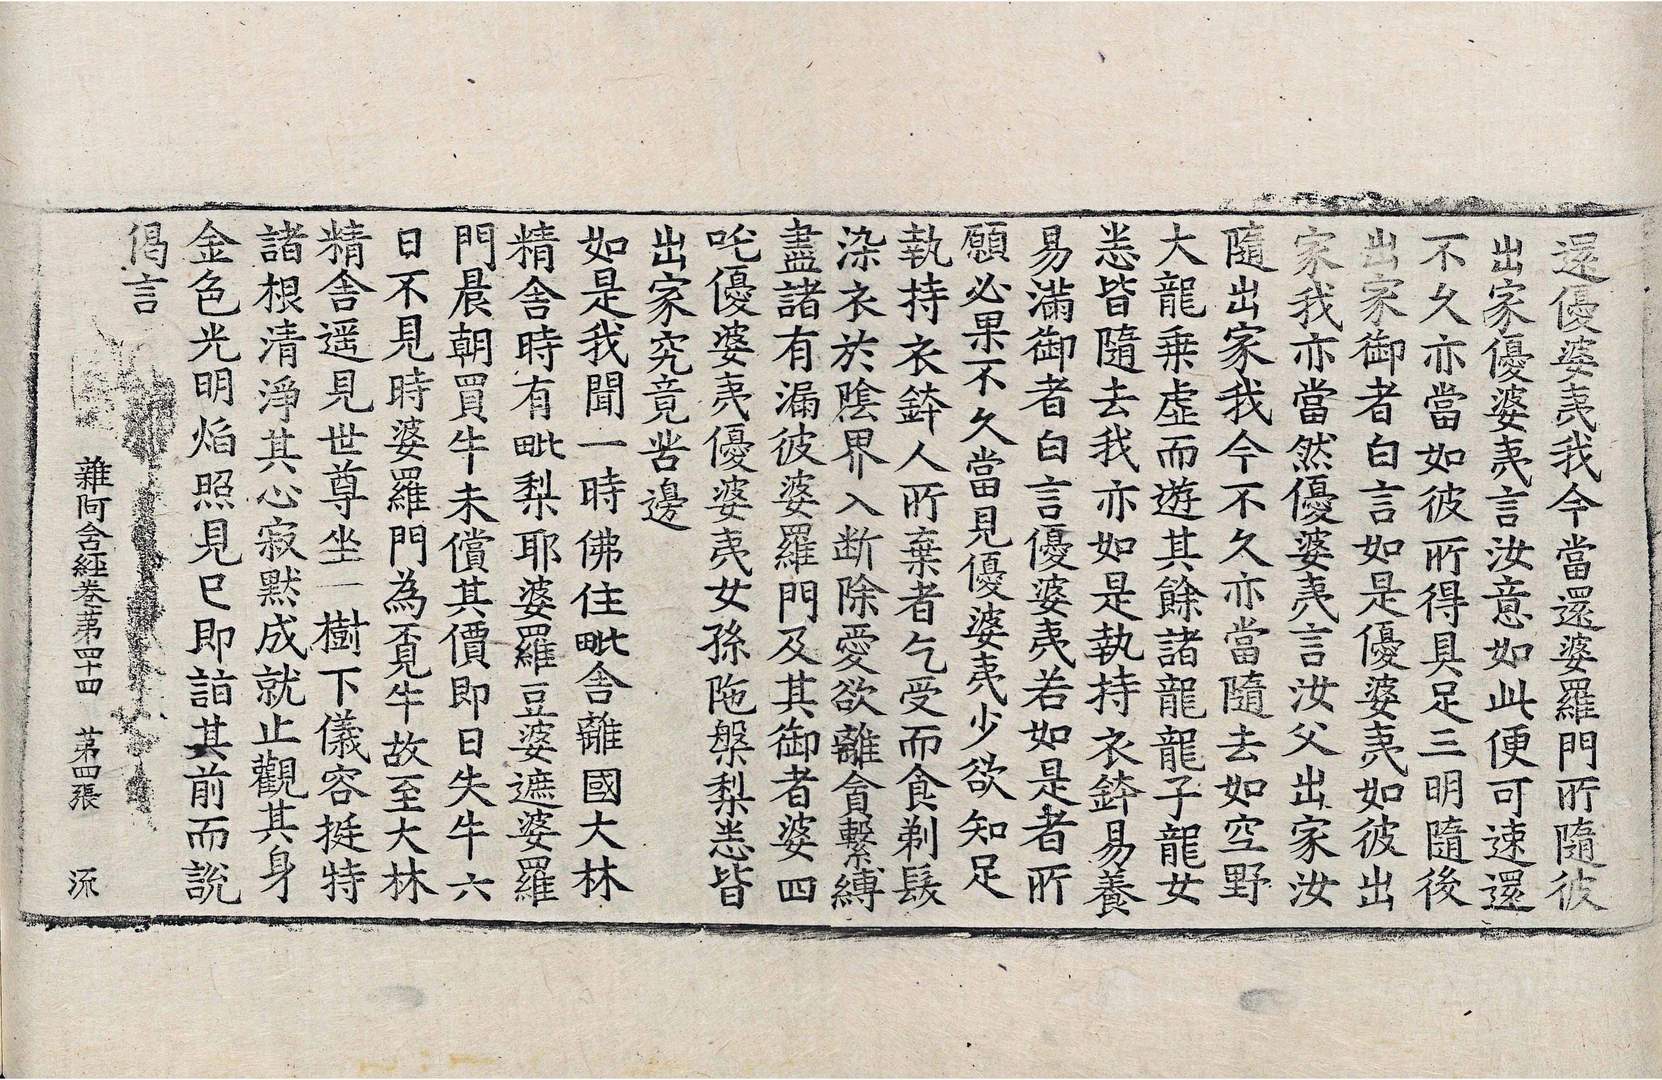 還優婆夷我今當還婆羅門所隨彼
出家優婆夷言汝意如此便可速還
不久亦當如彼所得具足三明隨後
出家御者白言如是優婆夷如彼出
家我亦當然優婆夷言汝父出家汝
隨出家我今不久亦當隨去如空野
大龍乗虛而遊其餘諸龍龍子龍女
悉皆隨去我亦如是執持衣鉢易養
易滿御者白言優婆夷若如是者所
願必果不久當見優婆夷少欲知足
執持衣鉢人所棄者乞受而食剃髮
染衣於陰界入斷除愛欲離貪繫縛
盡諸有漏彼婆羅門及其御者婆四
吒優婆夷優婆夷女孫陁槃梨悉皆
出家究竟苦邊
如是我聞一時佛住毗舍離國大林
精舍時有毗梨耶婆羅豆婆遮婆羅
門晨朝買牛未償其價即日失牛六
日不見時婆羅門為覓牛故至大林
精舍遥見世尊坐一樹下儀容挺特
諸根清淨其心寂默成就止觀其身
金色光明焰照見已即詣其前而說
偈言
雜阿含經卷第四十四 第四張 流